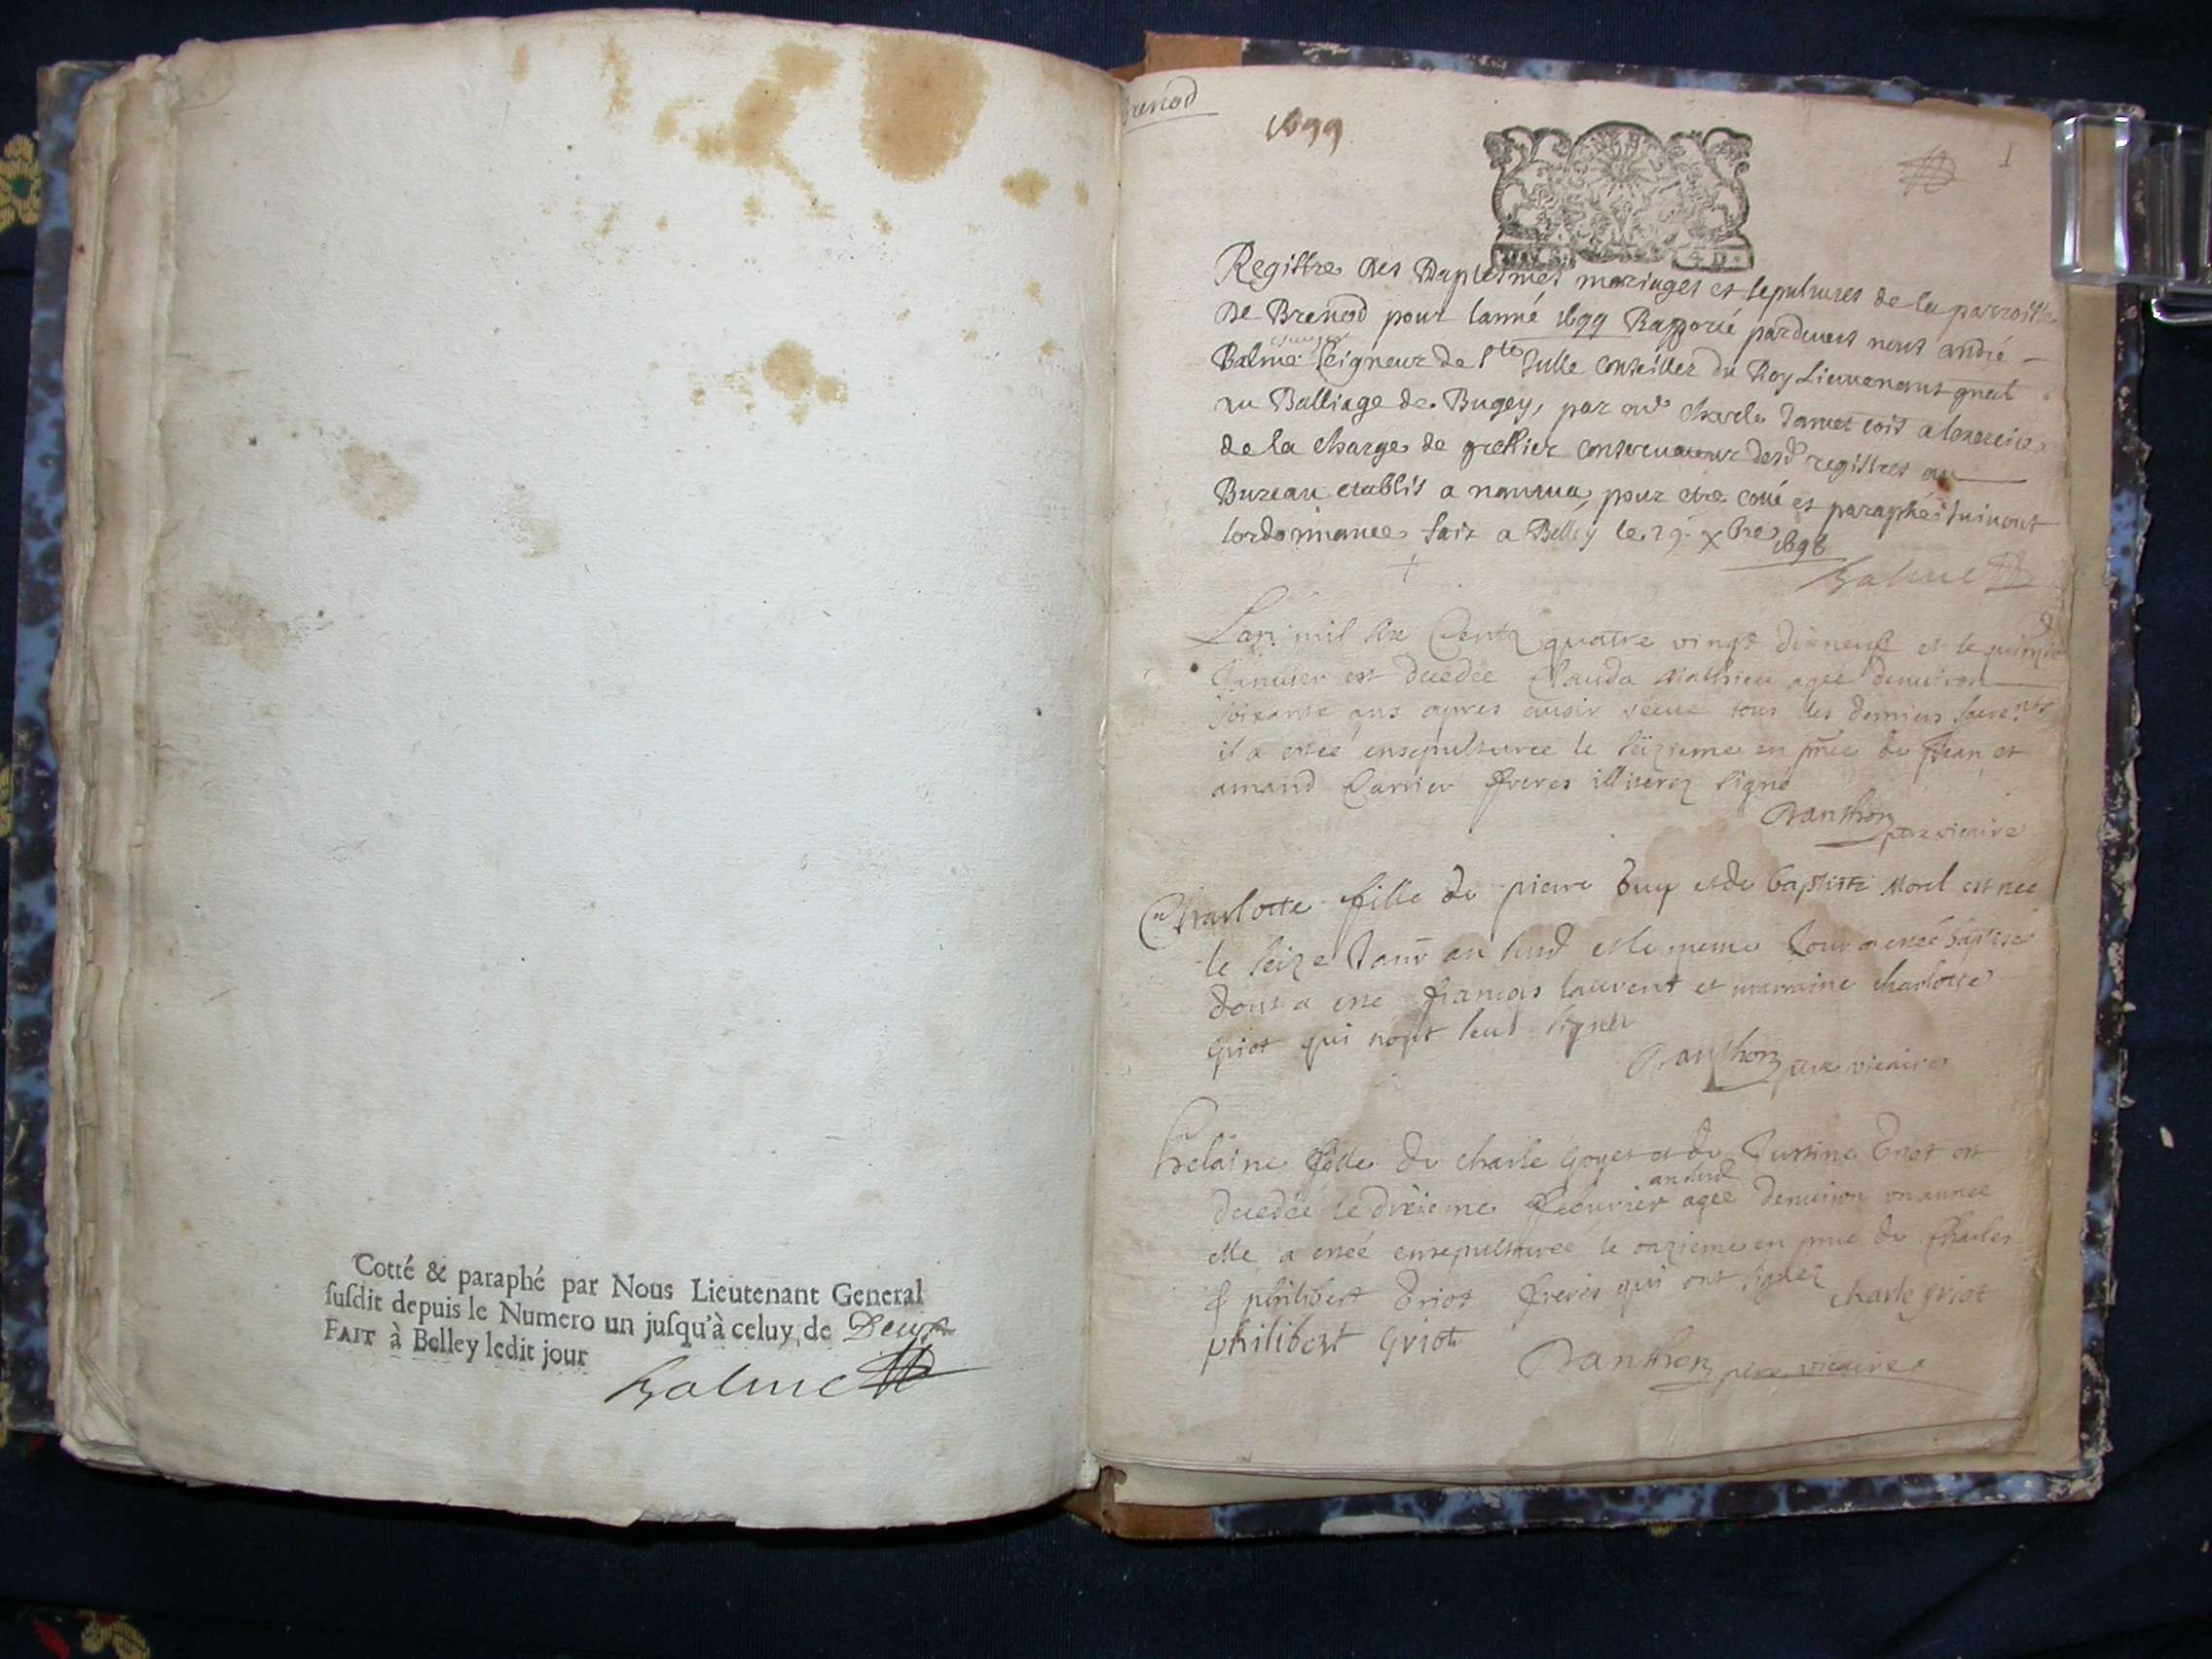 Cotté & paraphé par Nous Lieutenant General
susdit depuis le Numero un jusqu'à celuy de Deux
FAIT à Belley ledit jour
Balme
Brenod
1699
I
Registre des Baptesmes mariages et sepultures de la parroisse
de Brenod pour lanné 1699 Rapporté pardevant nous andré
Balme Seigneur de Ste Julle conseiller du Roy Lieutenant gnal
au Balliage de Bugey, par Charle Jannet comis a lexercice
de la charge de greffier conservateur desd registres au
Bureau etablis a nantua, pour etre cotté et paraphé suivant
lordonnance fait a Belley le 29 Xbre 1698
Balme
Lan mil six Centz quatre vingt dixneuf et le quinzie
Janvier est decedee Clauda Mathieu agee denviron
soixante ans apres avoir receue tous les derniers sacrents
il a estee ensepulturee le seizieme en pnce de Jean et
amand Carrier freres illiterez signe
Danthon ptre vicaire
Charlotte fille de pierre Buy et de baptiste Morel est nee
le seize Janv an susd et le meme Jour a estee baptisee
dont a este francois laurent et marraine charlotte
griot qui nont seus signer
Danthon ptre vicaire
helaine fille de charle goyet et de Jussine Griot est
an susd
decedee le dixieme febvrier agee denviron un annee
elle a estee ensepulturee le onzieme en pnce de Charles
& philibert Griot freres qui ont signez charle griot
philibert Griot
Danthon ptre vicaire